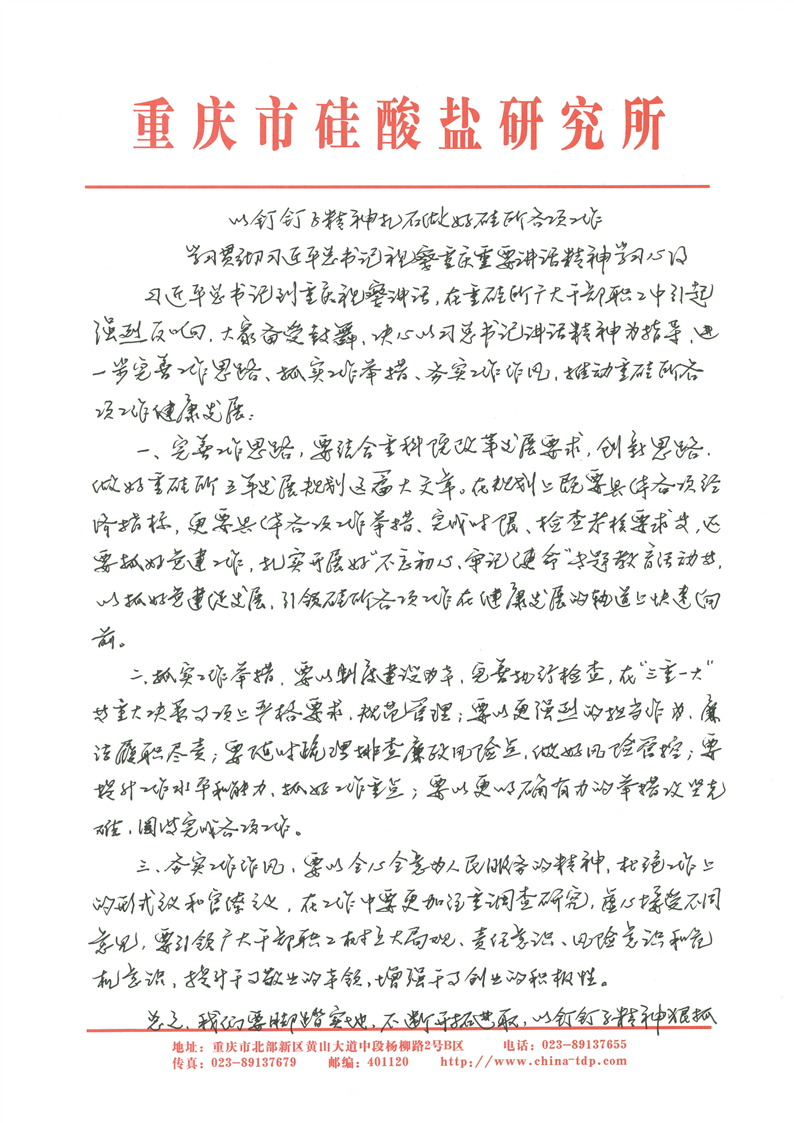 重庆市硅酸盐研究所
以钉钉子精神扎实做好硅所各项工作
学习贯彻习近平总书记视察重庆重要讲话精神学习心得
习近平总书记到重庆视察讲话，在重硅所广大干部职工中引起
强烈反响，大家备受鼓舞，决心以习总书记讲话精神为指导，进
一步完善工作思路、抓实工作举措、夯实工作作风，推动重硅所各
项工作健康发展：
一、完善工作思路，要结合重科院改革发展要求，创新思路，
做好重硅所五年发展规划这篇大文章。在规划上既要具体各项经
济指标，更要具体各项工作举措、完成时限、检查考核要求等，还
要抓好党建工作，扎实开展好“不忘初心，牢记使命”主题教育活动等，
以抓好党建促发展，引领硅所各项工作在健康发展的轨道上快速向
前。
二、抓实工作举措，要以制度建设为本，完善执行检查，在“三重一大”
等重大决策事项上严格要求，规范管理；要以更强烈的担当作为，廉
洁履职尽责；要随时梳理排查廉政风险点，做好风险管控；要
提升工作水平和能力，抓好工作重点；要以更明确有力的举措攻坚克
难，圆满完成各项工作。
三、夯实工作作风，要以全心全意为人民服务的精神，杜绝工作上
的形式主义和官僚主义，在工作中要更加注重调查研究，虚心接受不同
意见，要引领广大干部职工树立大局观、责任意识、风险意识和危
机意识，提升干事敬业的本领，增强干事创业的积极性。
总之，我们要脚踏实地，不断开拓进取，以钉钉子精神狠抓
地址：重庆市北部新区黄山大道中段杨柳路2号B区 电话：023-89137655
传真：023-89137679 邮编：401120 http://www.china-tdp.com